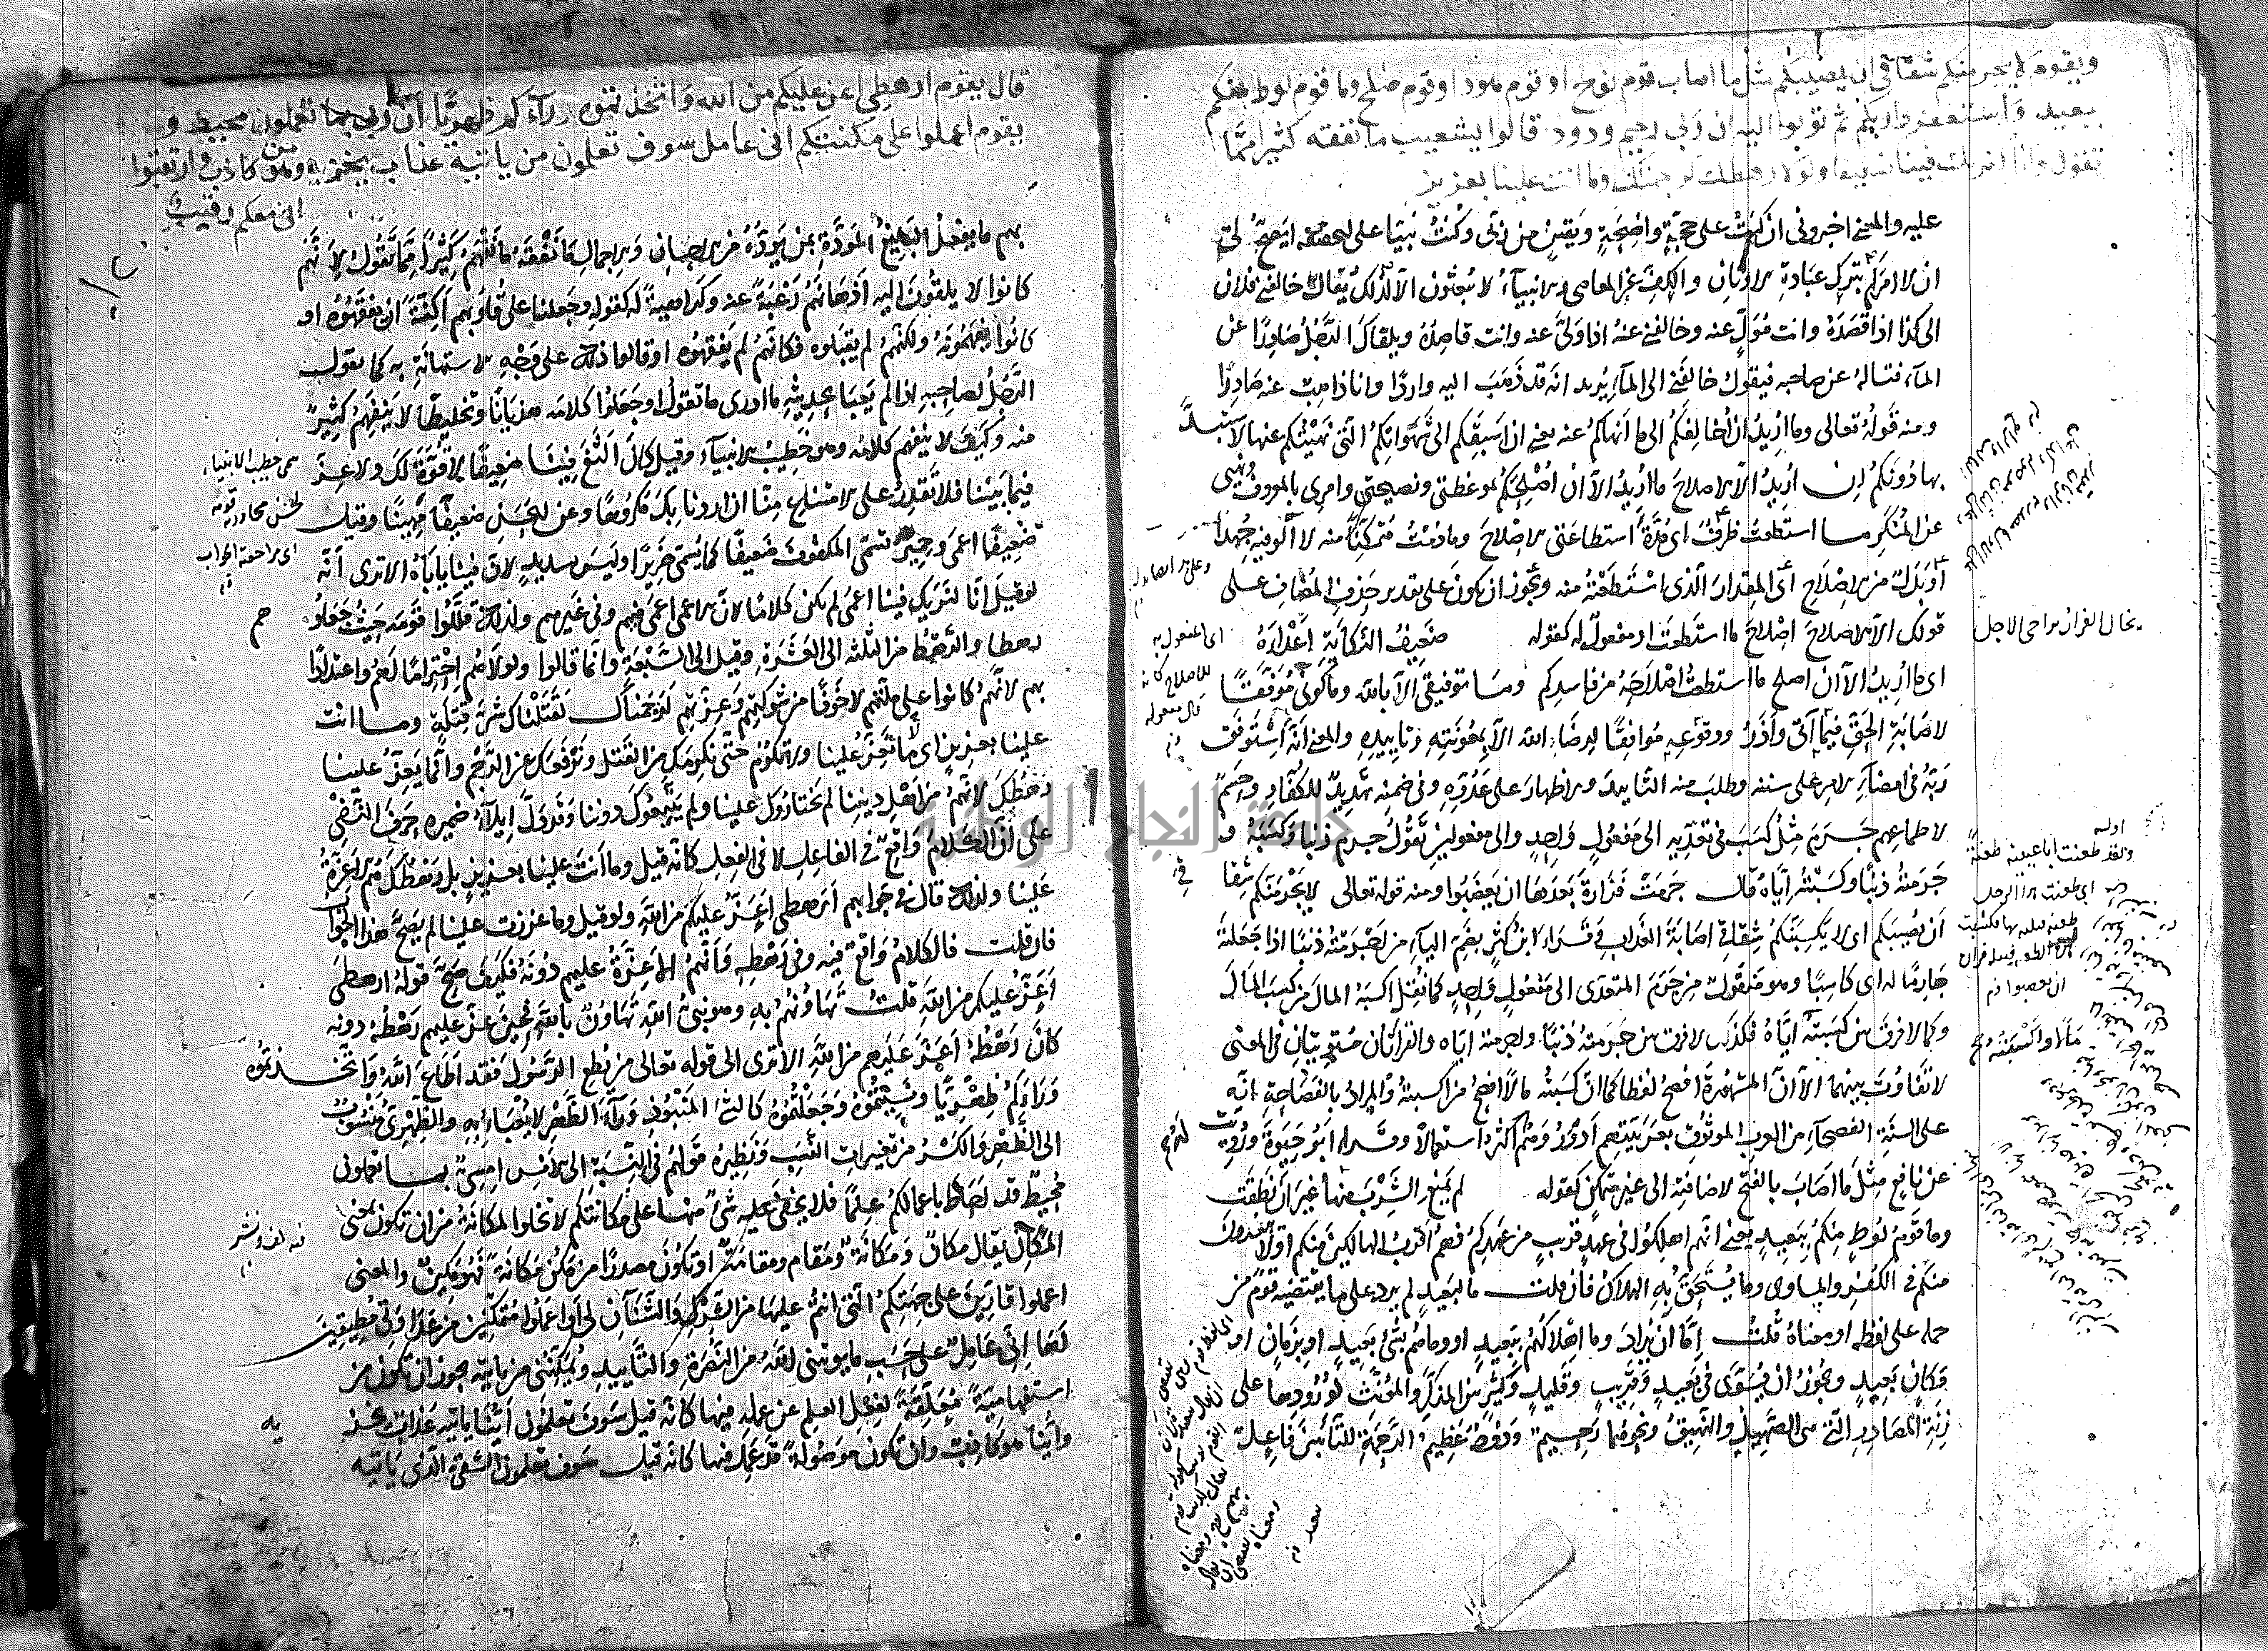 ويقوم لا يجرمنكم شقاقى ان يصيبكم مثل ما اصاب قوم نوح او قوم هود او قوم صلح وما قوم لوط منكم
ببعيد واستغفروا ربكم ثم توبوا اليه ان ربى رحيم ودود قالوا يشعيب ما نفقه كثيرا مما
تقول وانا لنريك فينا ضعيفا ولولا رهطك لرجمنك وما انت علينا بعزيز
عليه والمعنى اخبرونى ان كنت على حجة واضحة ويقين من ربى وكنت نبيا على الحقيقة ايصح لى
ان لا امركم بترك عبادة الاوثان والكف عن المعاصى والانبياء لا يبعثون الا لذلك يقال خالفنى فلان
الى كذا اذا قصده وانت مول عنه وخالفنى عنه اذا ولى عنه وانت قاصده ويلقاك الرجل صادرا عن
الماء فتساله عن صاحبه فيقول خالفنى الى الماء يريد انه قد ذهب اليه واردا وانا ذاهب عنه صادرا
ومنه قوله تعالى وما اريد ان اخالفكم الى ما انهاكم عنه يعنى ان اسبقكم الى شهواتكم التى نهيتكم عنها لاستبد
بها دونكم ان اريد الا الاصلاح ما اريد الا ان اصلحكم بموعظتى ونصيحتى وامرى بالمعروف ونهيى
عن المنكر ما استطعت ظرف اى مدة استطاعتى للاصلاح وما دمت متمكنا منه لا الو فيه جهدا
او بدل من الاصلاح اى المقدار الذى استطعته منه ويجوز ان يكون على تقدير حذف المضاف على
قولك الا الاصلاح اصلاح ما استطعت او مفعول له كقوله ضعيف النكاية اعداءه
اى ما اريد الا ان اصلح ما استطعت اصلاحه من فاسدكم وما توفيقى الا بالله وما كونى موفقا
لاصابة الحق فيما اتى واذر ووقوعه موافقا لرضاء الله الا بمعونته وتاييده والمعنى انه استوفق
ربه فى امضاء الامر على سننه وطلب منه التاييد والاظهار على عدوه وفى ضمنه تهديد للكفار وحسم
لاطماعهم جرم مثل كسب فى تعديه الى مفعول واحد والى مفعولين تقول جرم ذنبا وكسبه و
جرمته ذنبا وكسبته اياه قال جرمت فزارة بعدها ان يغضبوا ومنه قوله تعالى لا يجرمنكم شقا
ان يصيبكم اى لا يكسبنكم شقاقى اصابة العذاب وقراء ابن كثير بضم الياء من اجرمته ذنبا اذا جعلته
جارما له اى كاسبا وهو منقول من جرم المتعدى الى مفعول واحد كما نقل اكسبه المال من كسب المال
وكما لا فرق بين كسبته اياه فكذلك لا فرق بين جرمته ذنبا واجرمته اياه والقراتان مستويتان فى المعنى
لا تفاوت بينهما الا ان المشهورة افصح لفظا كما ان كسبته مالا افصح من اكسبته والمراد بالفصاحة انه
على السنة الفصحاء من العرب الموثوق بعربيتهم ادور وهم اكثر له استعمالا وقراء ابو حيوة ورويت
عن نافع مثل ما اصاب بالفتح لاضافته الى غير متمكن كقوله لم يمنع الشرب منها غير ان نطقت
وما قوم لوط منكم ببعيد يعنى انهم اهلكوا فى عهد قريب من عهدكم فهم اقرب الهالكين منكم او لا يبعدون
منكم فى الكفر والمساوى وما يستحق به الهلاك فان قلت ما لبعيد لم يرد على ما يقتضيه قوم من
حمله على لفظه او معناه قلت اما ان يراد وما اهلاكهم ببعيد او وما هم بشئ بعيد او بزمان او
مكان بعيد ويجوز ان يسوى فى بعيد وقريب وقليل وكثير بين المذكر والمؤنث لورودها على
زنة المصادر التى هى الصهيل والنهيق ونحوهما رحيم ودود عظيم الرحمة للتائبين فاعل
بخال الفرار يراخى الاجل
اوله
ولقد طعنت ابا عيينة طعنة
مالا واكسبته
قال يقوم ارهطى اعز عليكم من الله واتخذتموه وراءكم ظهريا ان ربى بما تعملون محيط و
يقوم اعملوا على مكنتكم انى عامل سوف تعلمون من ياتيه عذاب يخزيه ومن هو كاذب وارتقبوا
انى معكم رقيب
بهم ما يفعل البليغ المودة بمن يوده من الاحسان والاجمال ما نفقه ما نفهم كثيرا مما تقول لانهم
كانوا لا يلقون اليه اذهانهم رغبة عنه وكراهية له كقوله وجعلنا على قلوبهم اكنة ان يفقهوه او
كانوا يفهمونه ولكنهم لم يقبلوه فكانهم لم يفقهوه او قالوا ذلك على وجه الاستهانة به كما يقول
الرجل لصاحبه اذا لم يعبا بحديثه ما ادرى ما تقول او جعلوا كلامه هذيانا وتخليطا لا ينفهم كثير
منه وكيف لا ينفهم كلامه وهو خطيب الانبياء وقيل كان الثغ فينا ضعيفا لا قوة لك ولا عز
فيما بيننا فلا تقدر على الامتناع منا ان اردنا بك مكروها وعن الحسن ضعيفا مهينا وقيل
ضعيفا اعمى وحمير تسمى المكفوف ضعيفا كما يسمى ضريرا وليس بسديد لان فينا ياباه الا ترى انه
لو قيل انا لنريك فينا اعمى لم يكن كلاما لان الاعمى اعمى فيهم وفى غيرهم ولذلك قللوا قومه حيث جعلوا
رهطا والرهط من الثلثة الى العشرة وقيل الى السبعة وانما قالوا ولولاهم احتراما لهم واعتدادا
بهم لانهم كانوا على ملتهم لا خوفا من شوكتهم وعزتهم لرجمناك لقتلناك شر قتلة وما انت
علينا بعزيز اى لا تعز علينا ولا تكرم حتى نكرمك من القتل ونرفعك عن الرجم وانما يعز علينا
رهطك لانهم من اهل ديننا لم يختاروك علينا ولم يتبعوك دوننا وقد دل ايلاء ضميره حرف النفى
على ان الكلام واقع فى الفاعل لا فى الفعل كانه قيل وما انت علينا بعزيز بل رهطك هم الاعزة
علينا ولذلك قال فى جوابهم ارهطى اعز عليكم من الله ولو قيل وما عززت علينا لم يصح هذا الجواب
فان قلت فالكلام واقع فيه وفى رهطه وانهم الاعزة عليهم دونه فكيف صح قوله ارهطى
اعز عليكم من الله قلت تهاونهم به وهو نبى الله تهاون بالله فحين عز عليهم رهطه دونه
كان رهطه اعز عليهم من الله الا ترى الى قوله تعالى من يطع الرسول فقد اطاع الله واتخذتموه
وراءكم ظهريا ونسيتموه وجعلتموه كالشئ المنبوذ وراء الظهر لا يعبا به والظهرى منسوب
الى الظهر والكسر من تغيرات النسب ونظيره قولهم فى النسبة الى الامس امسى بما تعملون
محيط قد احاط باعمالكم علما فلا يخفى عليه شئ منها على مكانتكم لا تخلوا المكانة من ان تكون بمعنى
المكان يقال مكان ومكانة ومقام ومقامة او تكون مصدرا من مكن مكانة فهو مكين والمعنى
اعملوا قارين على جهتكم التى انتم عليها من الشرك والشنآن لى او اعملوا متمكنين من عداوتى مطيقين
لها انى عامل على حسب ما يوتينى الله من النصرة والتاييد ويمكننى من ياتيه يجوز ان تكون من
استفهامية معلقة لفعل العلم عن عمله فيها كانه قيل سوف تعلمون اينا ياتيه عذاب يخزيه
واينا هو كاذب وان تكون موصولة قد عمل فيها كانه قيل سوف تعلمون الشقى الذى ياتيه
سمى خطيب الانبياء
لحسن محاورته قومه
اى مراجعة الجواب
فيه لف ونشر